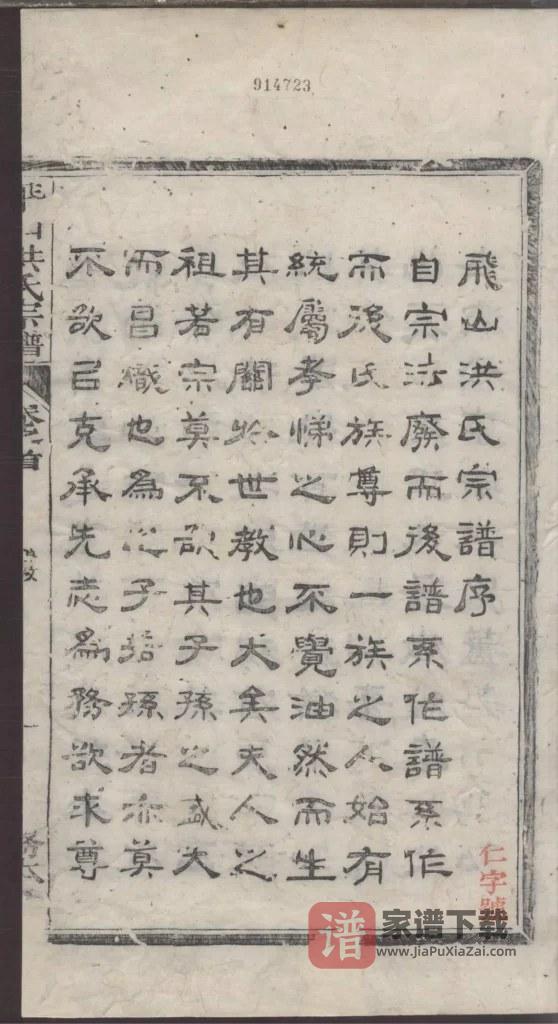 914723
飛山洪氏宗譜序
自宗法廢而後譜系作譜系作
而後氏族尊則一族之人始有
統屬孝悌之心不覺油然而生
其有關於世教也大矣夫人之
祖若宗莫不欲其子孫之盛大
而昌熾也為之子若孫者亦莫
不欲以克承先志為務欲求尊
山洪氏宗譜
卷之首
一
仁字號
譜
家谱下载
www.JiaPuXiaZai.com